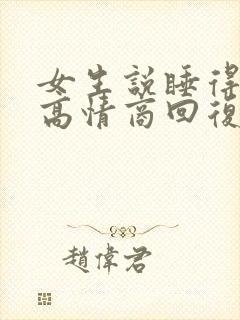 女生說睡得
高情商回復
趙偉君